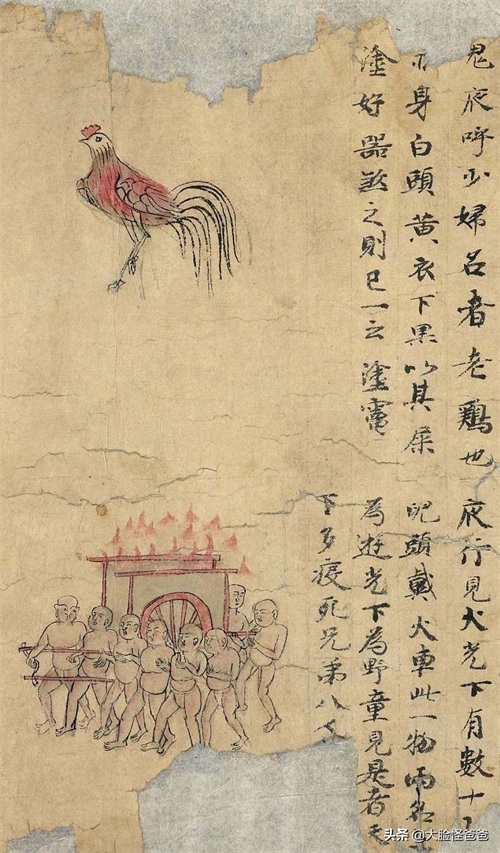 鬼夜呼少婦名者老鷄也
身白頭黄衣下黑以其屎
塗好器煞之則已一云塗
夜行見火光下有數十
兒頭戴火車此一物兩名
為遊光下為野童見是者天
下多疫死兄弟八
头条 @大脸怪爸爸